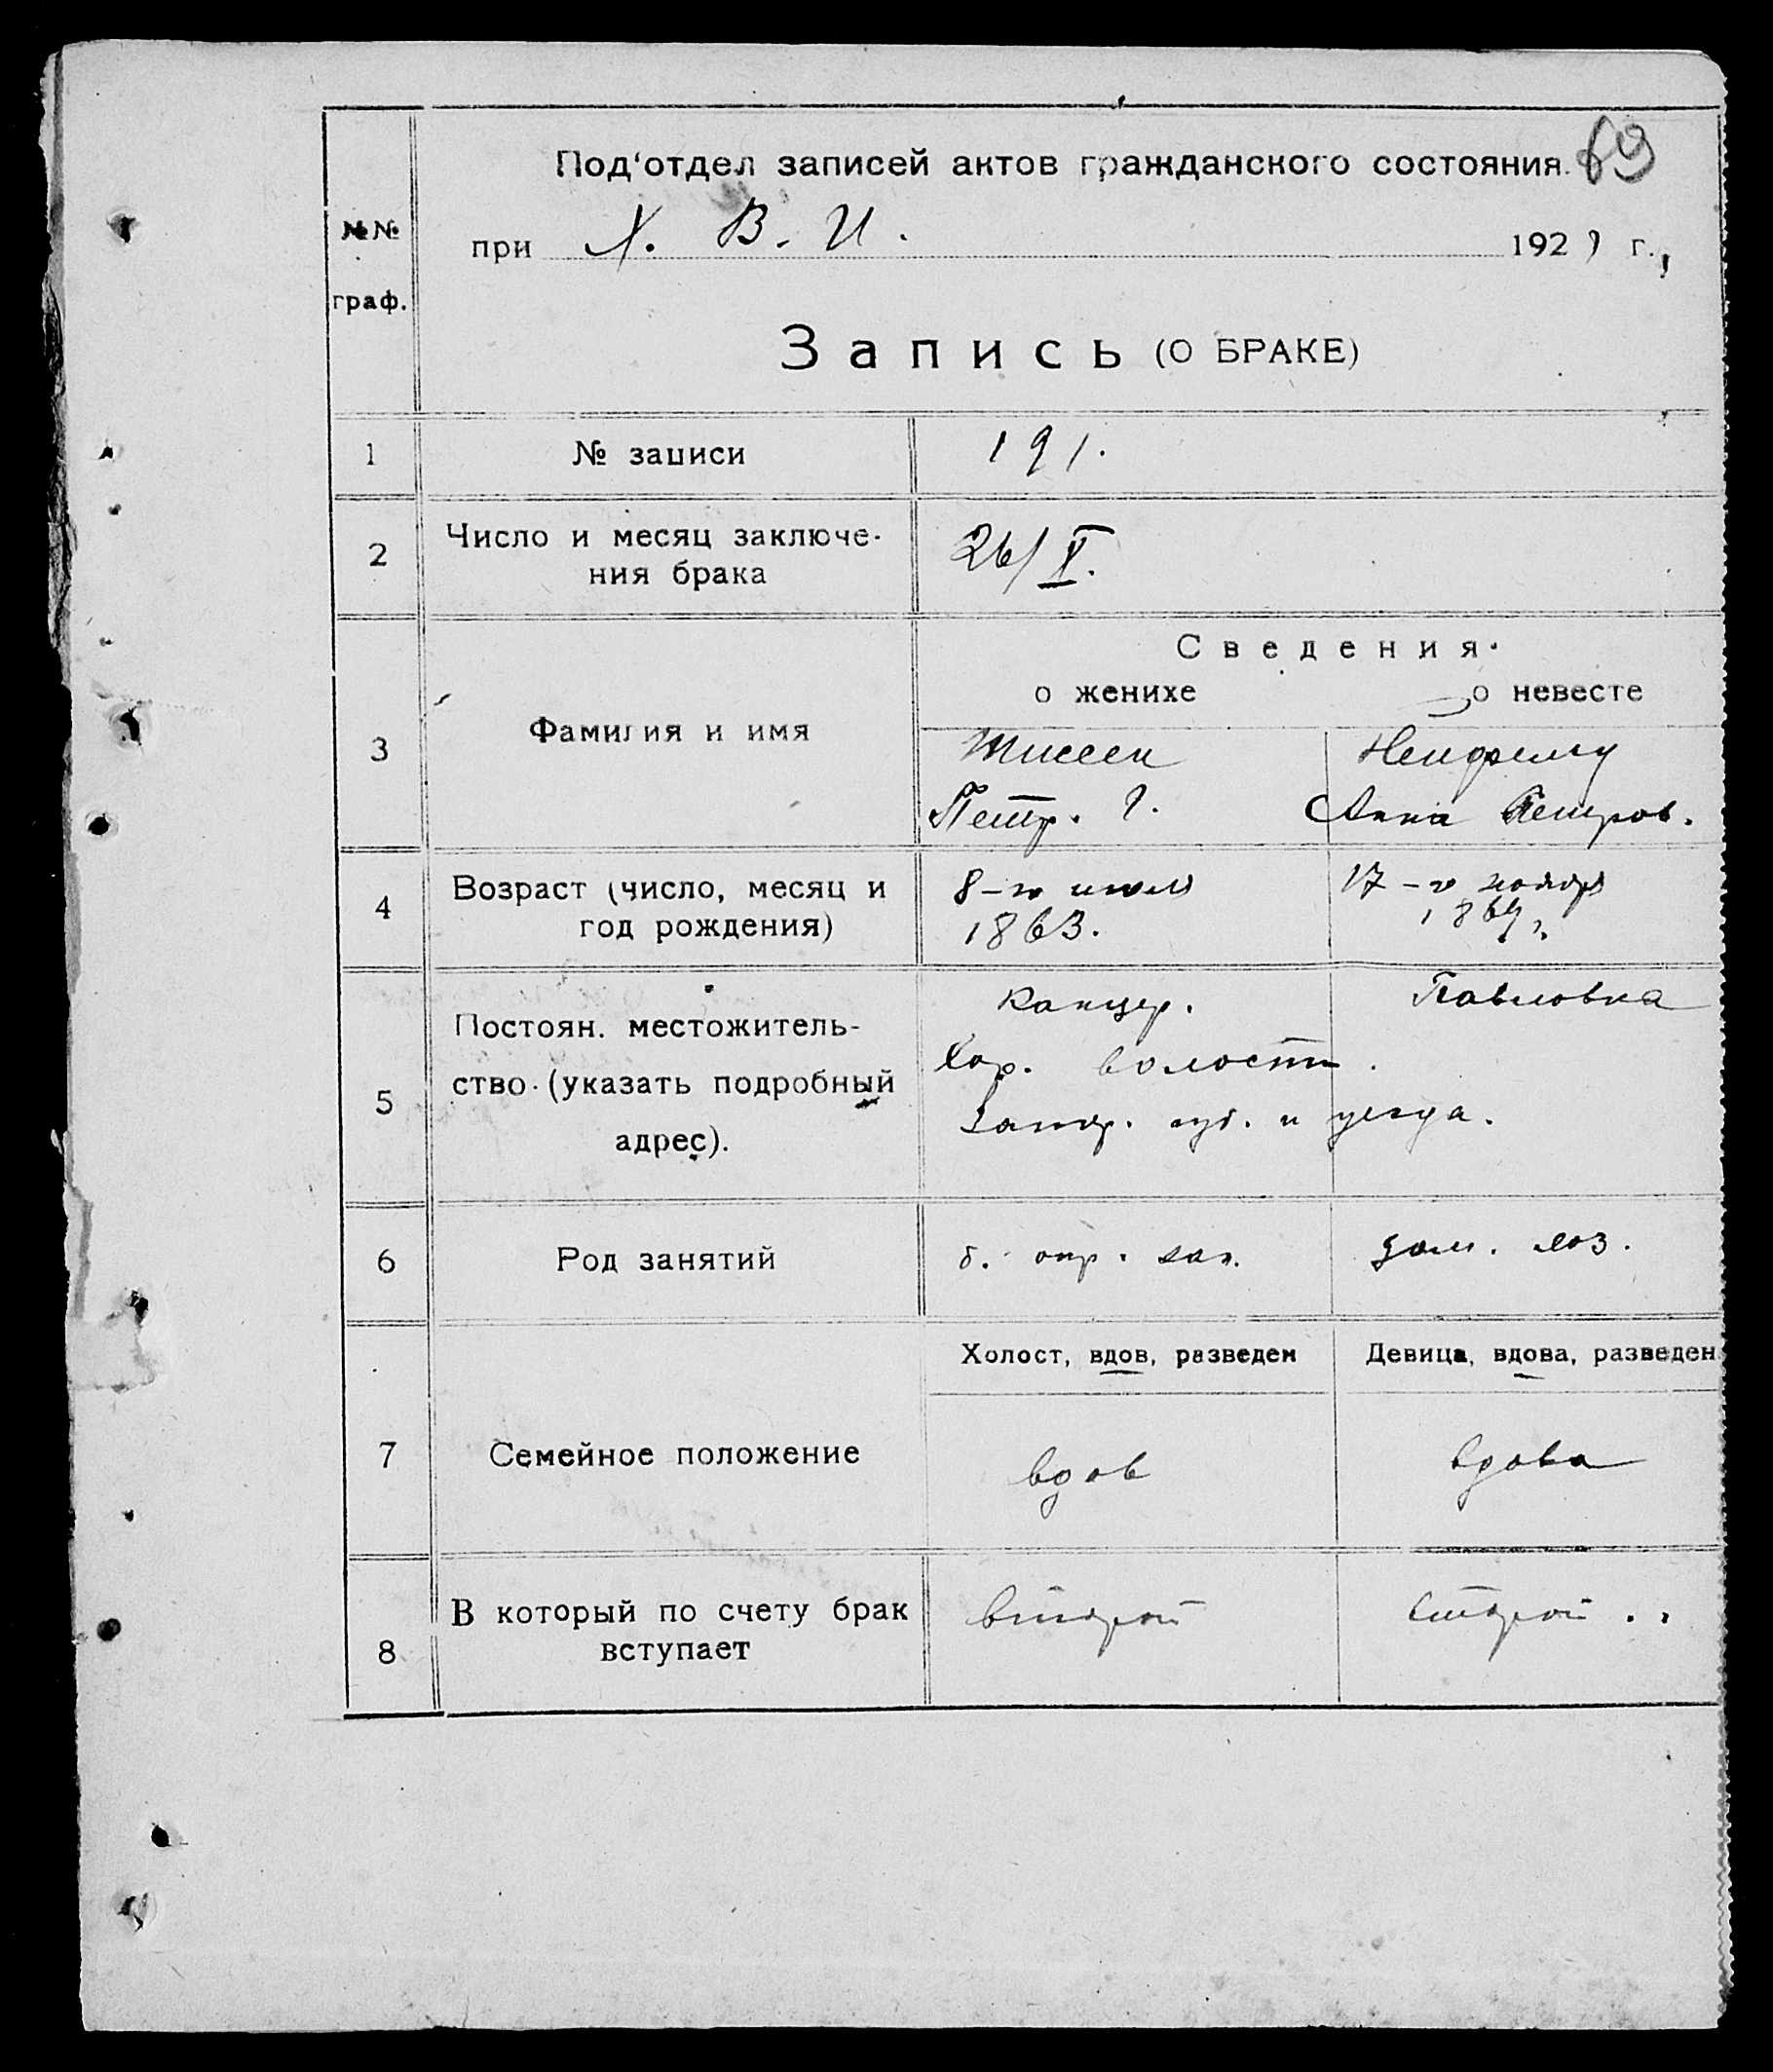 69
Под‘отдел записей актов гражданского состояния.
при Х. В. И. 1921 г.,
№№ граф.
Запись (О БРАКЕ)
1 № записи 191.
2 Число и месяц заключе-
ния брака 26/V.
Сведения.
о женихе о невесте
3 Фамилия и имя
Тиссен
Петр. Г. Анна Петров.
4 Возраст (число, месяц и
год рождения)
8-го июля 17-го ноября
1863. 1869 г.
5 Постоян. местожитель-
ство (указать подробный
адрес).
Канцер. Павловка
Хор. волости.
Запор. губ. и уезда.
6 Род занятий дом. хоз.
Холост, вдов, разведен Девица, вдова, разведен
7 Семейное положение
вдов вдова
8 В который по счету брак
вступает
второй второй